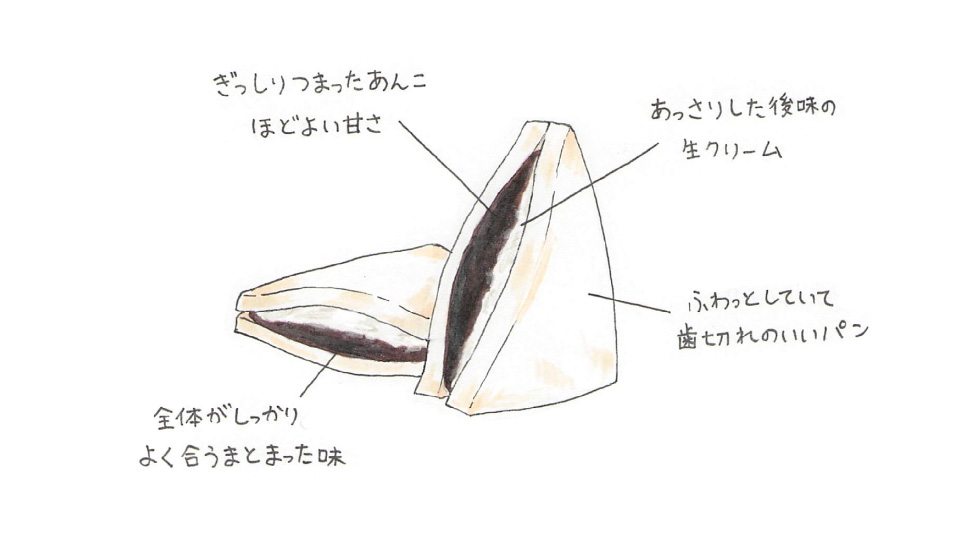 ぎっしりつまったあんこ
ほどよい甘さ
あっさりした後味の
生クリーム
ふわっとしていて
歯切れのいいパン
全体がしっかり
よく合うまとまった味